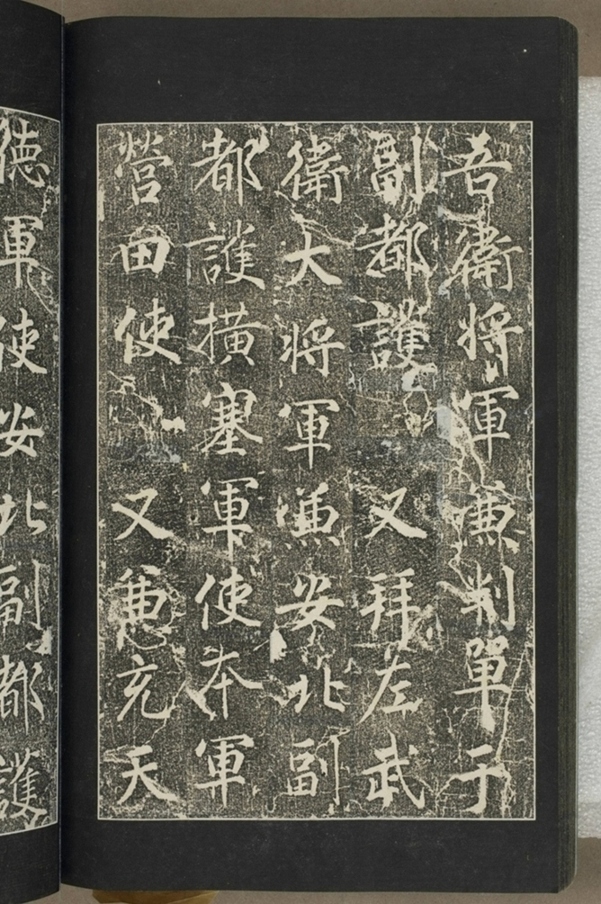 吾衛将軍兼判單于
副都護 又拜左武
衛大将軍兼安北副
都護横塞軍使本軍
營田使 又兼充天
德軍使安北副都護